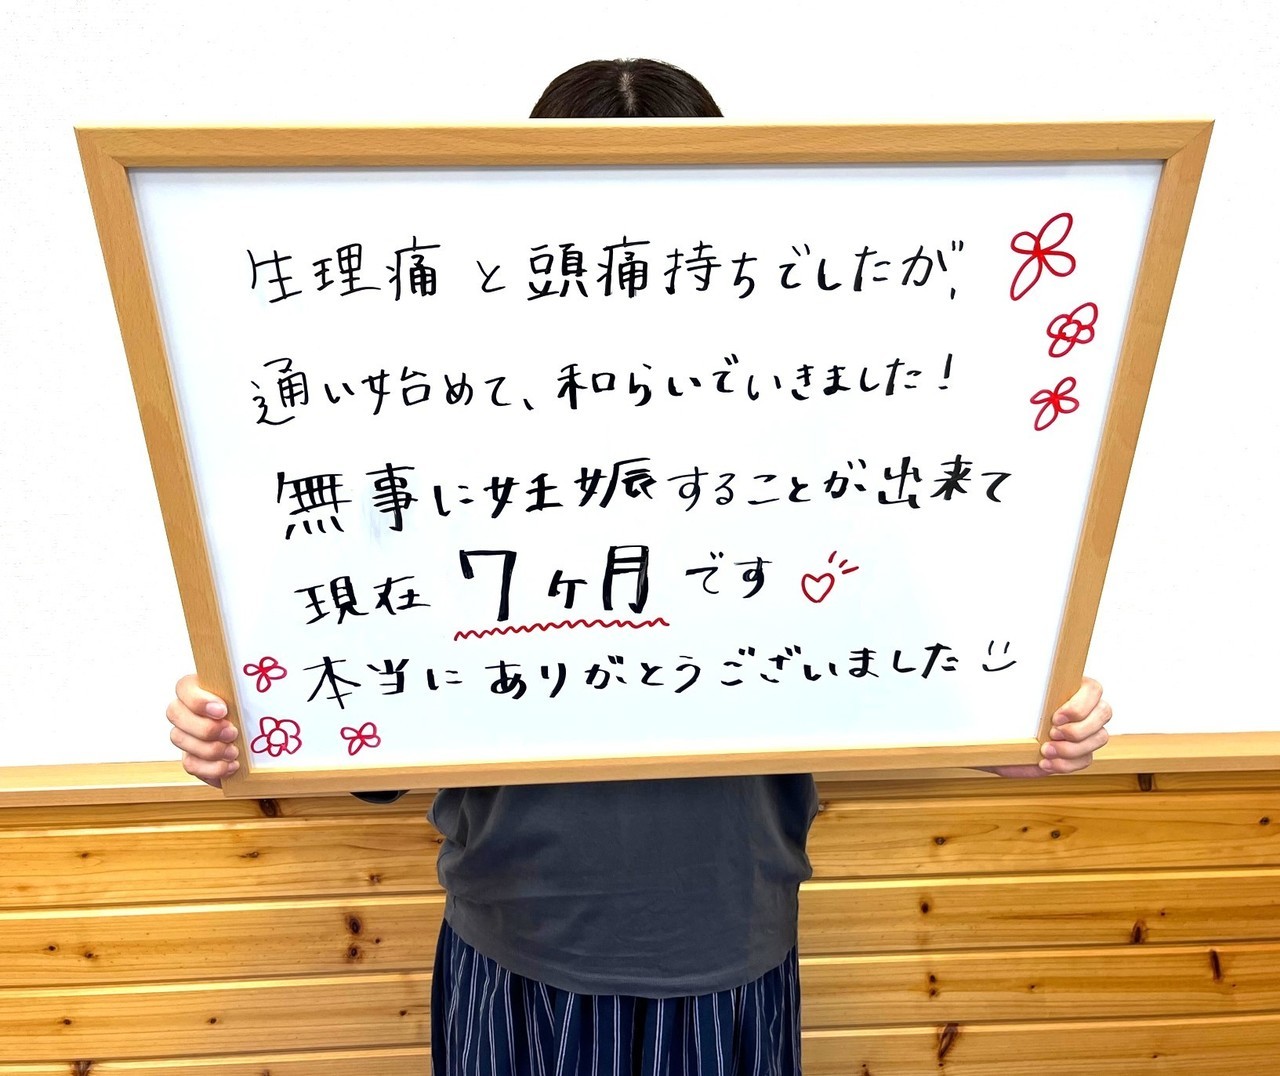 生理痛と頭痛持ちでしたが、
通い始めて、和らいでいきました!
無事に妊娠することが出来て
現在7ヶ月です
本当にありがとうございました